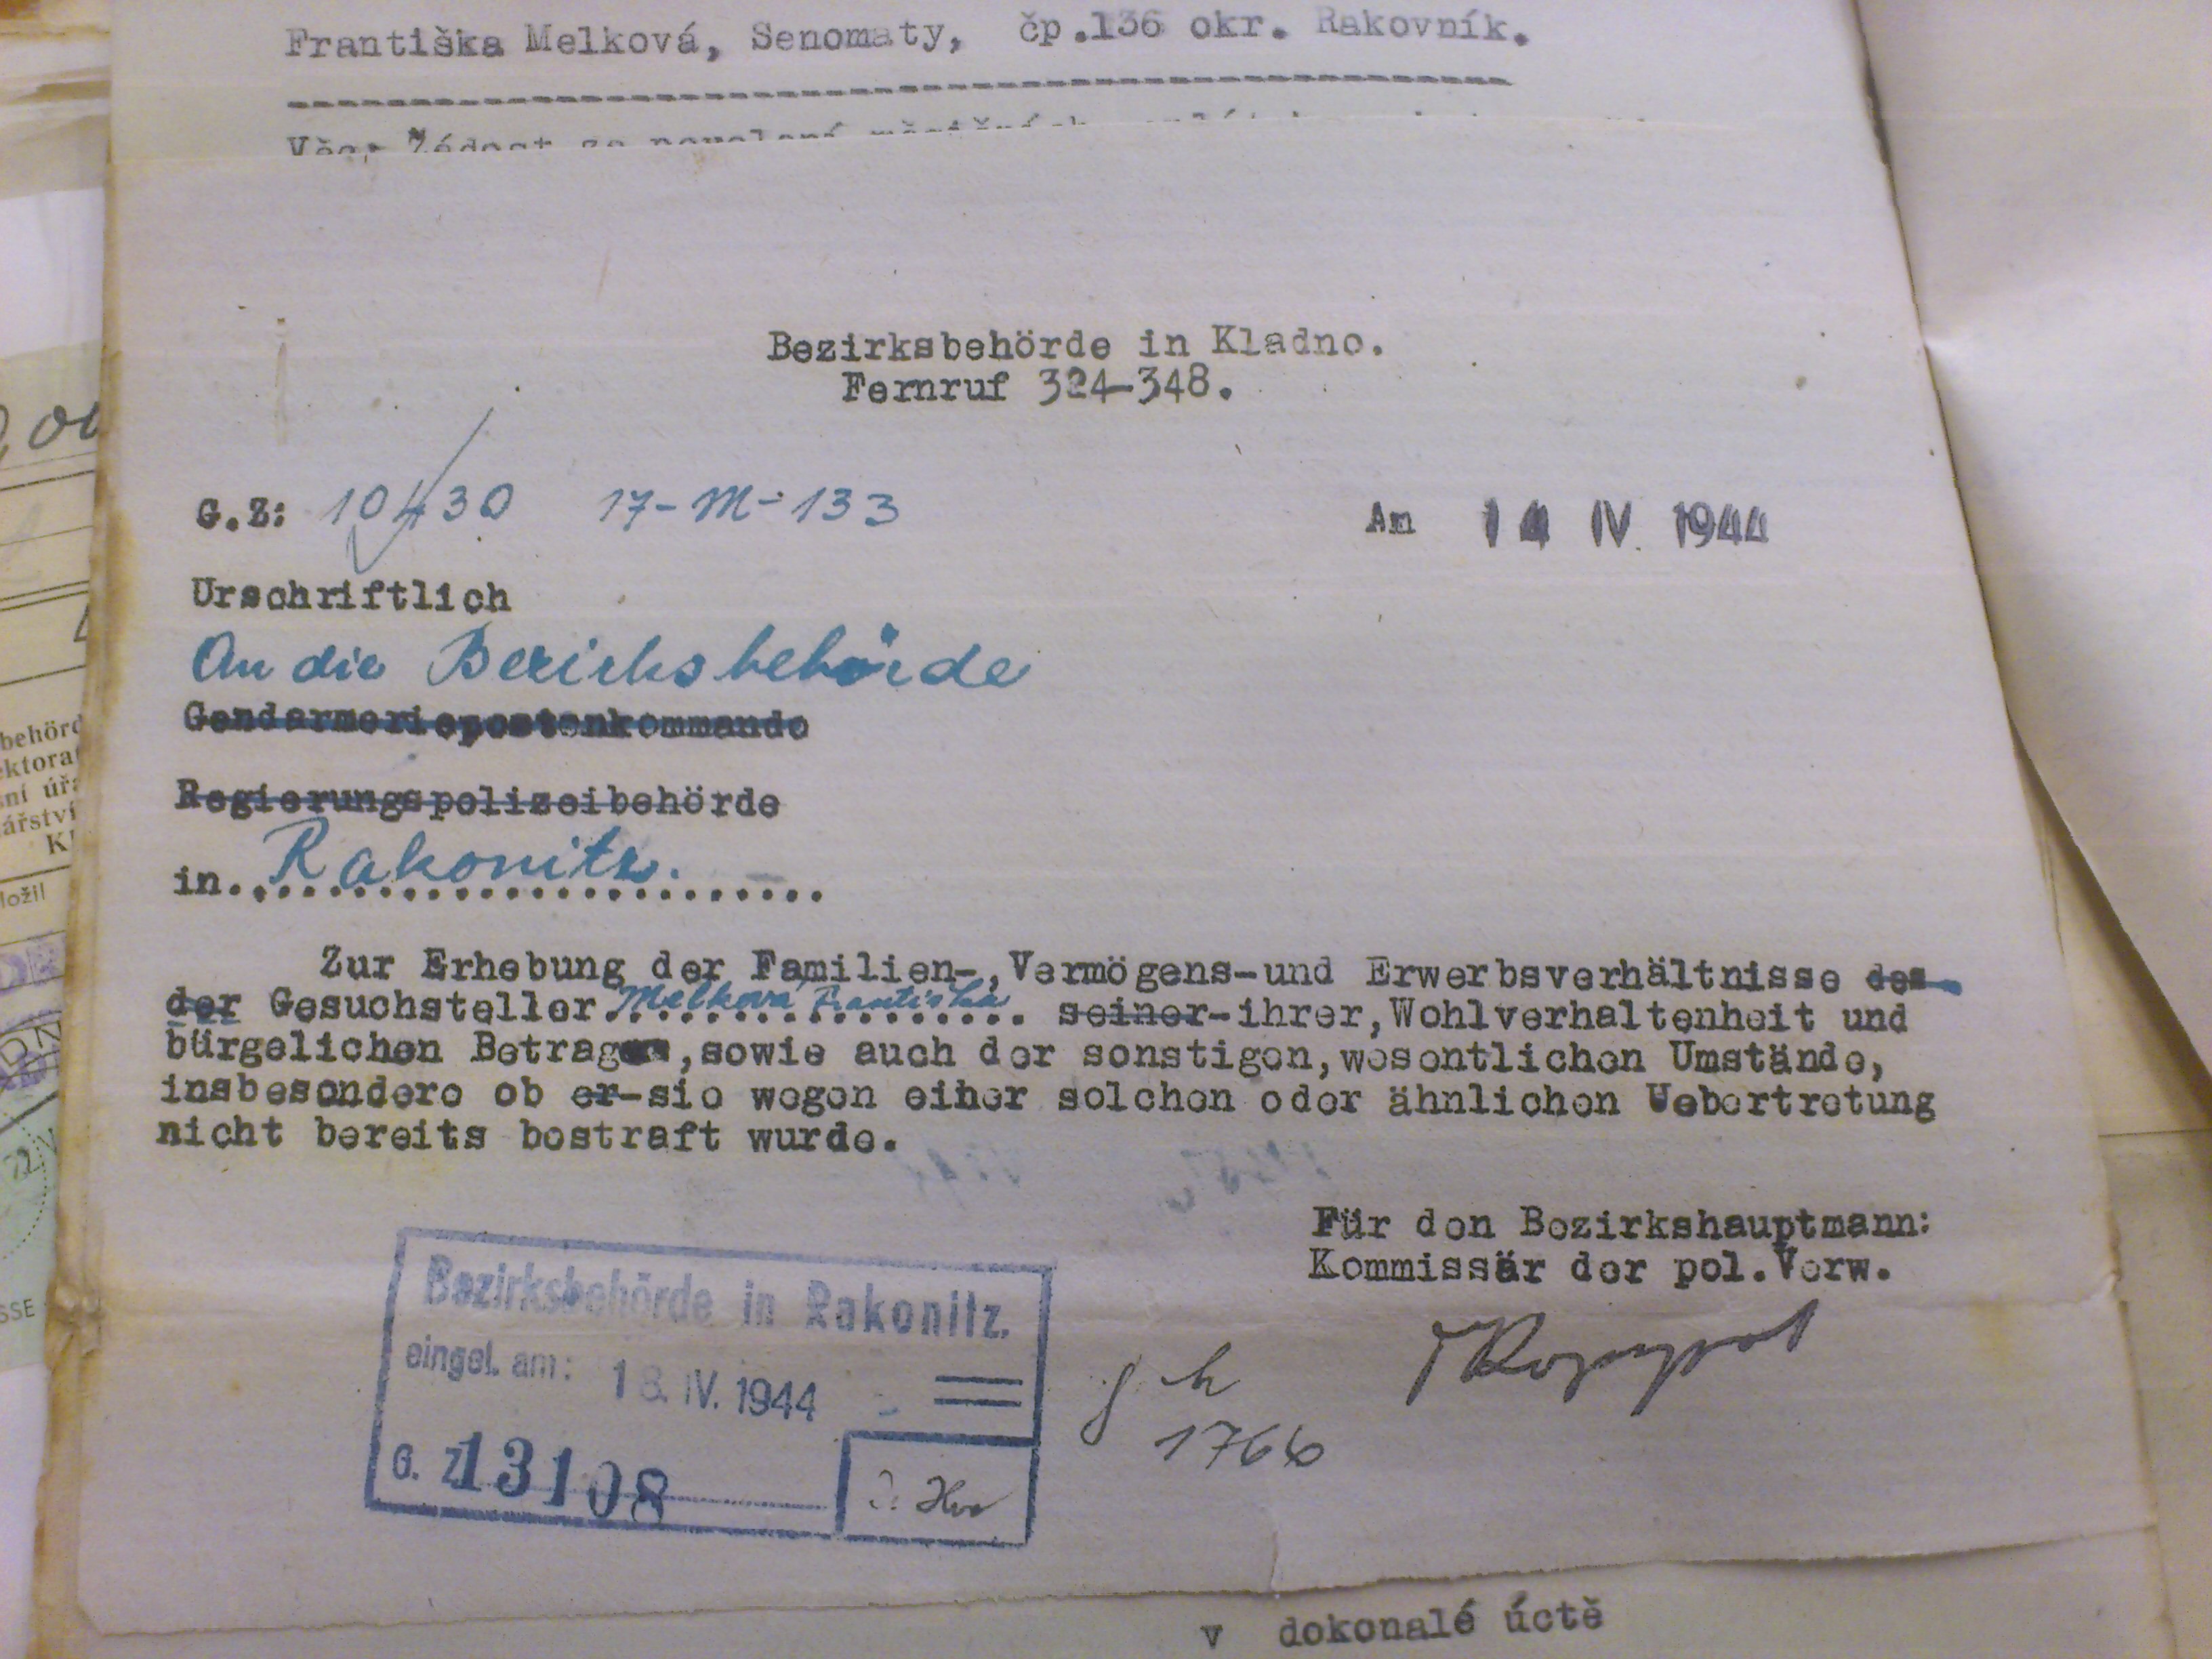 Františka Melková, Senomaty, čp.136 okr. Rakovník.
Věc: Žádost za povolení měsíčních
Bezirksbehörde in Kladno.
Fernruf 324-348.
G.Z: 10430 17-M-133
Am 14 IV. 1944
Urschriftlich
An die Bezirksbehörde
Gendarmeriepostenkommando
Regierungspolizeibehörde
in. Rakonitz.
Zur Erhebung der Familien-,Vermögens-und Erwerbsverhältnisse des
der Gesuchsteller Melkova Františka seiner-ihrer,Wohlverhaltenheit und
bürgelichen Betrag ,sowie auch der sonstigen,wesentlichen Umstände,
insbesondere ob er-sie wegen einer solchen oder ähnlichen Uebertretung
nicht bereits bestraft wurde.
Für den Bezirkshauptmann:
Kommissär der pol.Verw.
Bezirksbehörde in Rakonitz.
eingel. am: 18. IV. 1944
G. Z 13108
1766
v dokonalé úctě
behörd
ektorat
sní úřa
ářství
K
ložil
SSE